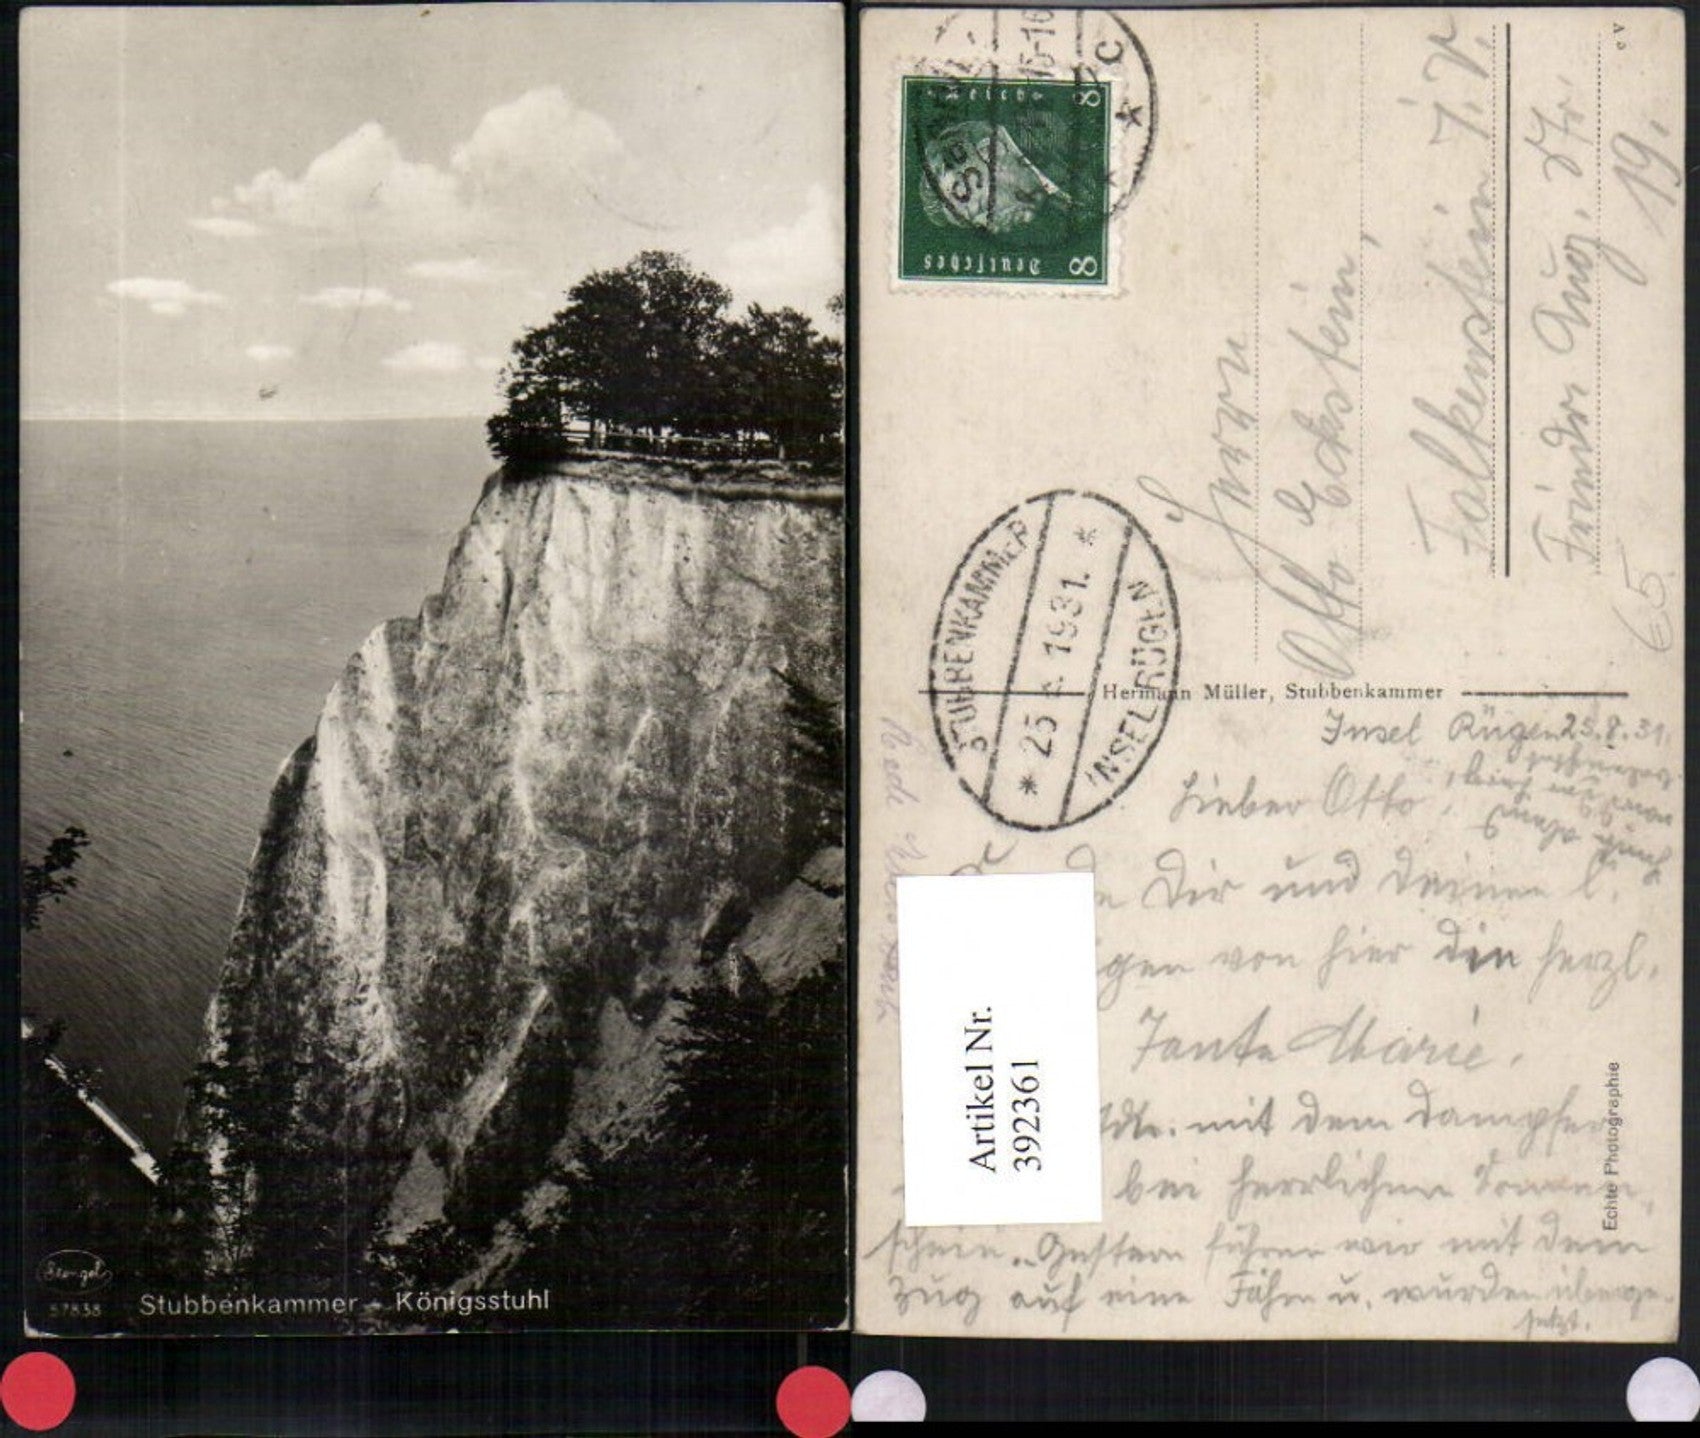 Stengel
57838 Stubbenkammer - Königsstuhl
Deutsches Reich
8 8
15-16
C
STUBBENKAMMER
* 25. 1931. *
INSEL RÜGEN
Herrn
Otto Eckstein,
Falkenstein i. V.
Friedr. Aug. Str.
19.
65
e V
Hermann Müller, Stubbenkammer
Echte Photographie
Insel Rügen 25.8.31.
Lieber Otto!
Dir und Deinen l.
von hier die herzl.
Tante Marie.
mit dem Dampfer
bei herrlichem Sonnen-
schein. Gestern fuhren wir mit dem
Zug auf eine Fähre u. wurden überge-
setzt.
Artikel Nr.
392361